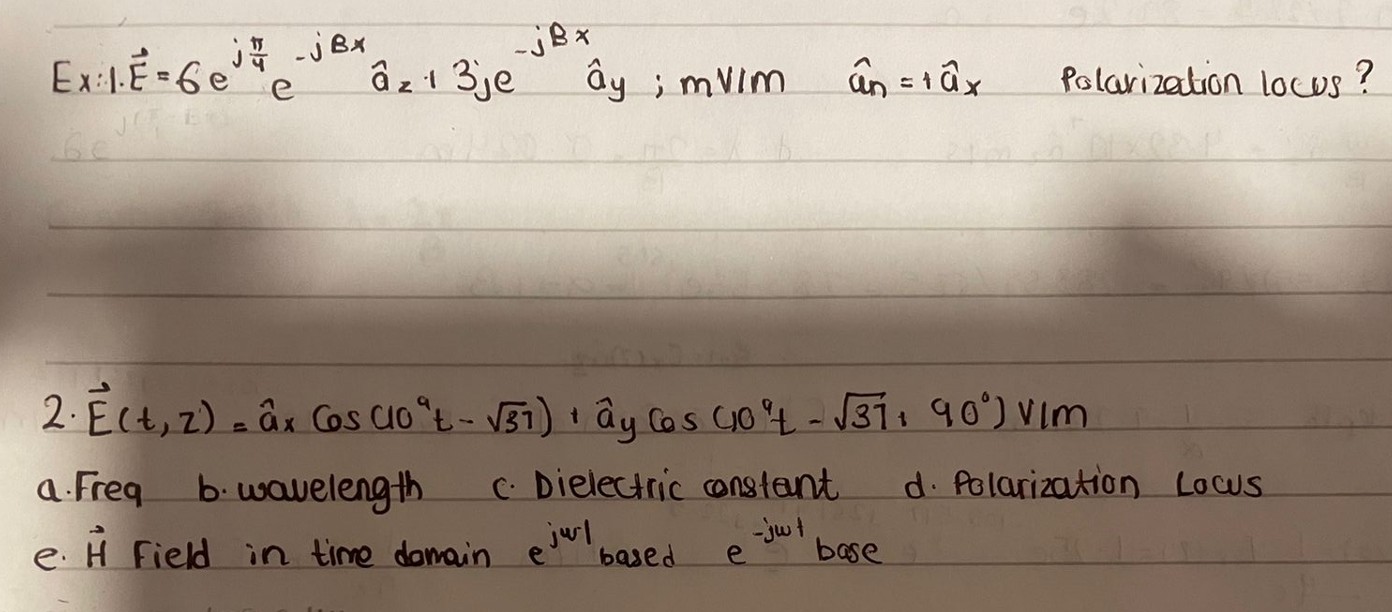 Ex:1. E⃗ = 6e^{jπ/4} e^{-jBx} âz + 3je^{-jBx} ây ; mV/m ân = +âx Polarization locus?
2. E⃗(t,z) = âx Cos(10⁹t - √37) + ây Cos(10⁹t - √37 + 90°) V/m
a. Freq b. wavelength c. Dielectric constant d. Polarization Locus
e. H⃗ Field in time domain e^{jwt} based e^{-jwt} base